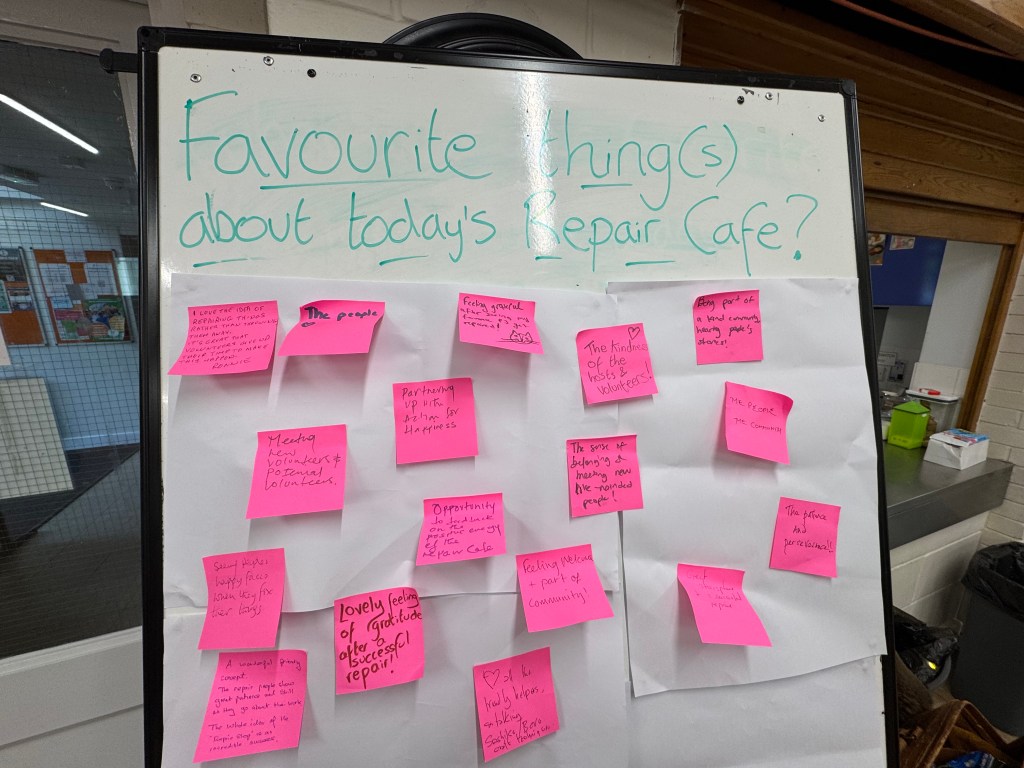 Favourite thing(s)
about today's Repair Cafe?
I LOVE THE IDEA OF
REPAIRING THINGS
RATHER THAN THROWING
THEM AWAY.
IT'S GREAT THAT
VOLUNTEERS GIVE UP
THEIR TIME TO MAKE
THIS HAPPEN.
The people
Feeling grateful
after having
repaired
The Kindness
of the
hosts &
volunteers!
part of
a kind community
hearing people's
stories!
Partnering
up with
Action for
Happiness
THE PEOPLE
THE COMMUNITY
Meeting
new
volunteers &
potential
volunteers.
The sense of
belonging &
meeting new
like-minded
people!
Opportunity
to feed back
on the
positive energy
of the
Repair Cafe
The patience
and
perseverance!!
Seeing
happy faces
when they fix
their
Feeling welcome
+ part of
community!
repair
Lovely feeling
of gratitude
after a
successful
repair!
A wonderful
concept.
The repair people show
great patience and skill
as they go about their work
The whole idea of the
'Repair Shop' is an
incredible success.
of the
helpers.